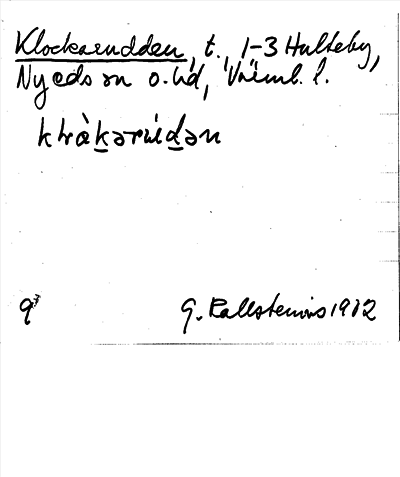 Klockarudden, t., 1-3 Hulteby,
Nyeds sn o. hd, Värml. l.
klåkarudan
G. Kallstenius 1912